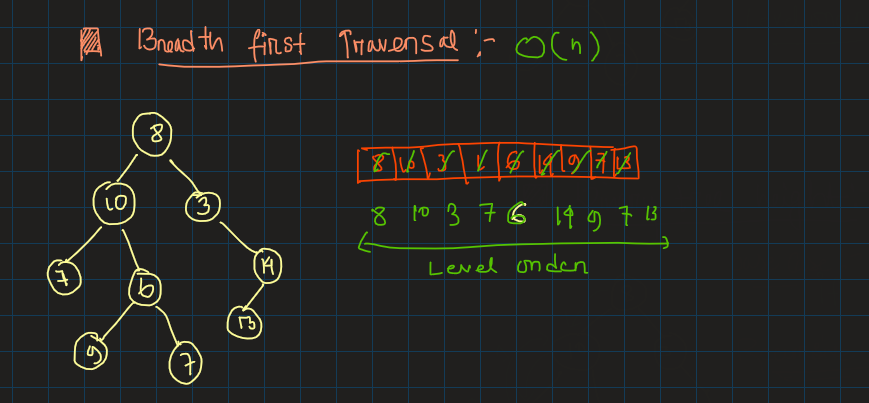 Breadth first Traversal :- O(n)
8
10 3
7 6 14
9 7 13
8 10 3 1 6 14 9 7 13
8 10 3 7 6 14 9 7 13
Level order